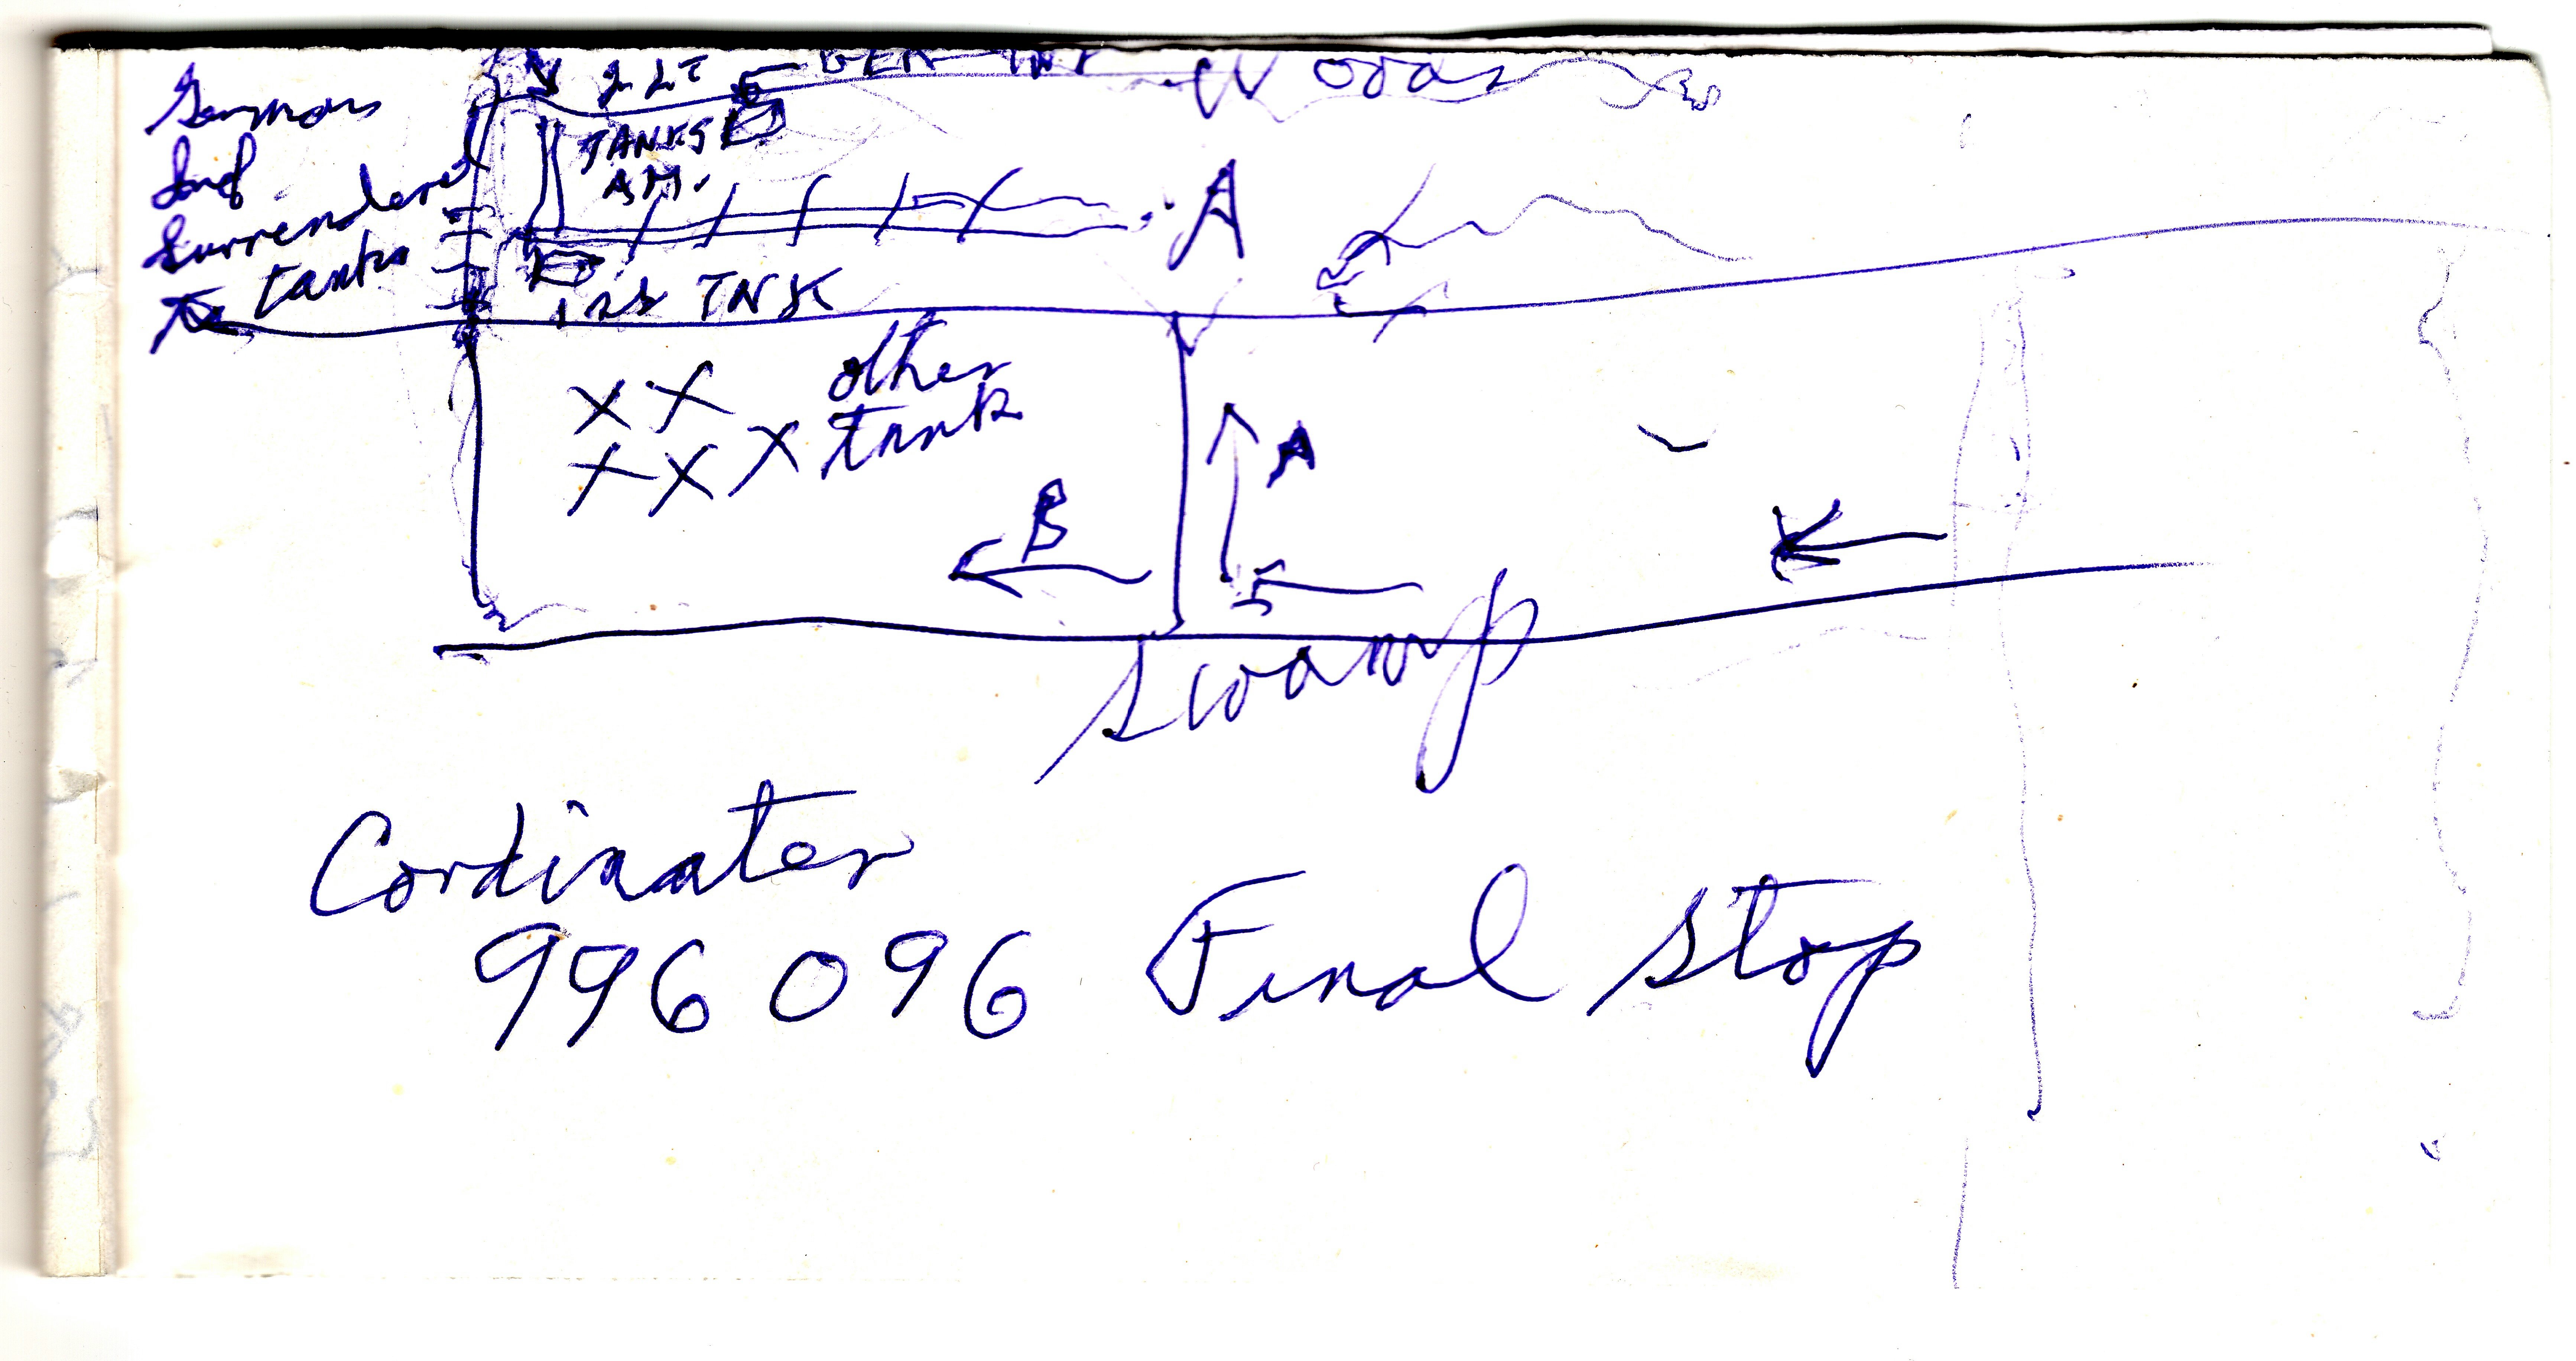 2 LT GER INF Woods
Germans
TANKS
AM.
surrendered
tanks
A
1st TNK
other
tank
A
B
swamp
Cordinates
996 096 Final Stop